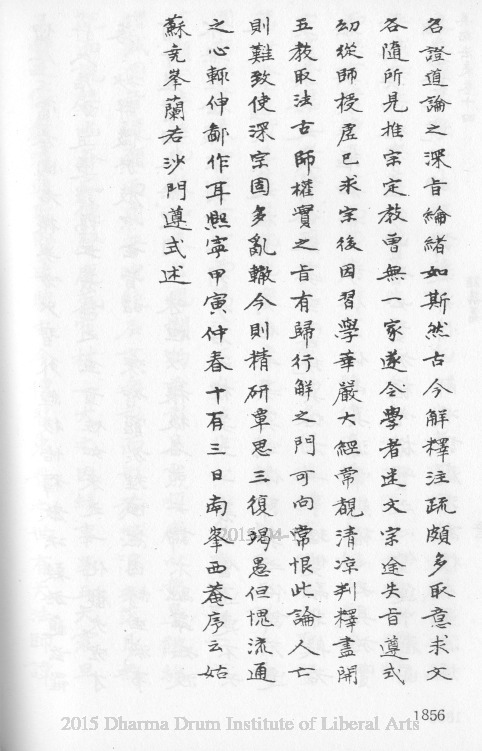 名證道論之深旨綸緒如斯然古今解釋注疏頗多取意求文
各隨所見推宗定教曽無一家遂令學者迷文宗途失旨遵式
幼從師授虛已求宗後因習學華嚴大經常覩清凉判釋盡開
五教取法古師權實之旨有歸行解之門可向常恨此論人亡
則難致使深宗固多亂轍今則精研覃思三復竭愚但愧流通
之心輒伸鄙作耳熙寧甲寅仲春十有三日南峯西菴序云姑
蘇堯峯蘭若沙門遵式述
1856
2015 Dharma Drum Institute of Liberal Arts